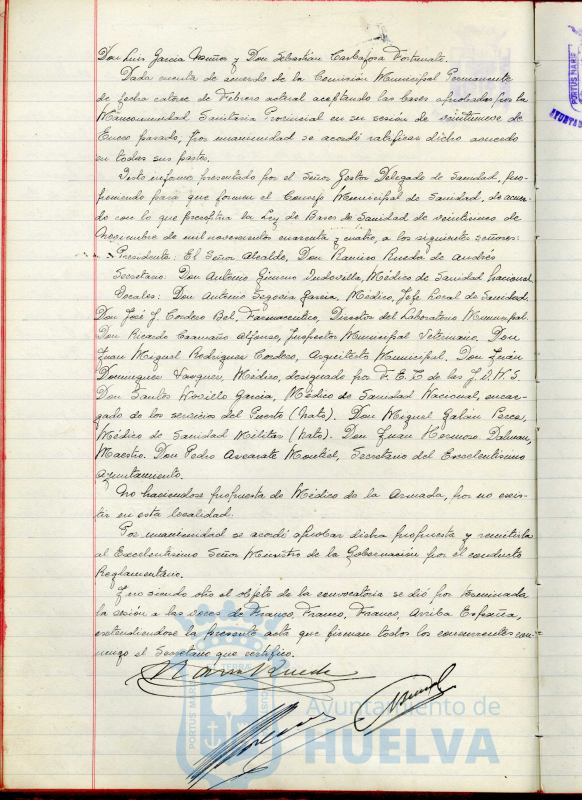 Don Luis García Muñoz y Don Sebastián Carbajosa Fortunato.
Dada cuenta de acuerdo de la Comisión Municipal Permanente
de fecha catorce de Febrero actual aceptando las bases aprobadas por la
Mancomunidad Sanitaria Provincial en su sesión de veintinueve de
Enero pasado, por unanimidad se acordó ratificar dicho acuerdo
en todas sus partes.
Visto informe presentado por el Señor Gestor Delegado de Sanidad, pro-
poniendo para que formen el Consejo Municipal de Sanidad, de acuer
do con lo que preceptúa la Ley de Bases de Sanidad de veintinueve de
Noviembre de mil novecientos cuarenta y cuatro, a los siguientes señores:
Presidente: El Señor Alcalde, Don Ramiro Rueda de Andrés
Secretario: Don Antonio Gimeno Médico de Sanidad Nacional
Vocales: Don Antonio Segovia García, Médico, Jefe Local de Sanidad.
Don José J. Cordero Bel, Farmaceutico, Director del Laboratorio Municipal.
Don Ricardo Caamaño Alfonso, Inspector Municipal Veterinario. Don
Juan Miguel Rodríguez Cordero, Arquitecto Municipal. Don Julián
Domínguez Vázquez, Médico, designado por F.E.T. de las J.O.N.S.
Don Santos García, Médico de Sanidad Nacional, encar-
gado de los servicios del Puerto (nato). Don Miguel Galán Perez,
Médico de Sanidad Militar (nato). Don Juan Hermoso Dalmau,
Maestro. Don Pedro Montiel, Secretario del Excelentísimo
Ayuntamiento.
No haciendose propuesta de Médico de la Armada, por no exis-
tir en esta localidad.
Por unanimidad se acordó aprobar dicha propuesta y remitirla
al Excelentísimo Señor Ministro de la Gobernación por el conducto
Reglamentario.
Y no siendo otro el objeto de la convocatoria se dió por terminada
la sesión a las voces de Franco, Franco, Franco, Arriba España,
extendiéndose la presente acta que firman todos los concurrentes con-
migo el Secretario que certifico.
Ramiro Rueda
Ayuntamiento de
HUELVA
PORTUS MARIS
PORTUS MARIS